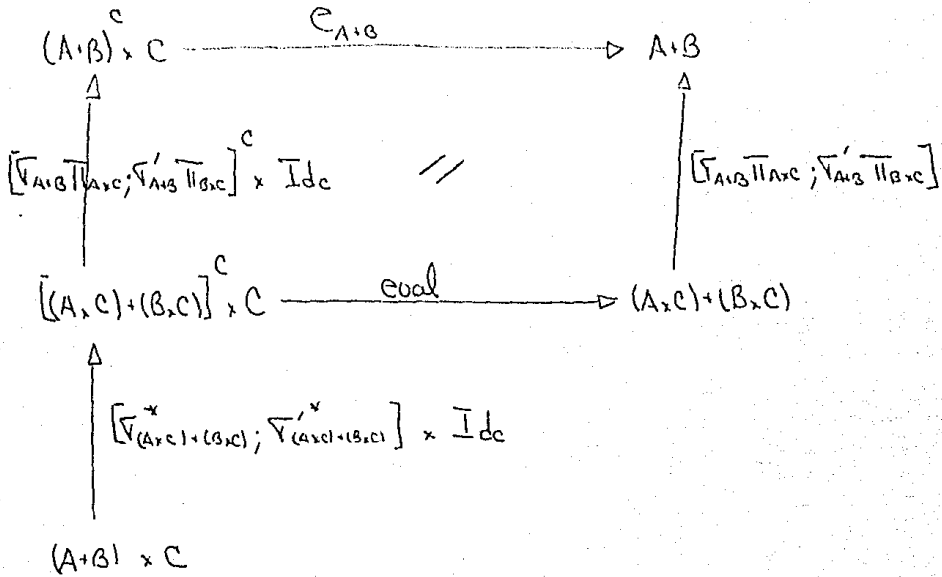 (A+B)^C × C e_{A+B} A+B
[σ_{A+B} π_{A×C} ; σ'_{A+B} π_{B×C}]^C × Id_C // [σ_{A+B} π_{A×C} ; σ'_{A+B} π_{B×C}]
[(A×C)+(B×C)]^C × C eval (A×C)+(B×C)
[σ*_{(A×C)+(B×C)} ; σ'*_{(A×C)+(B×C)}] × Id_C
(A+B) × C